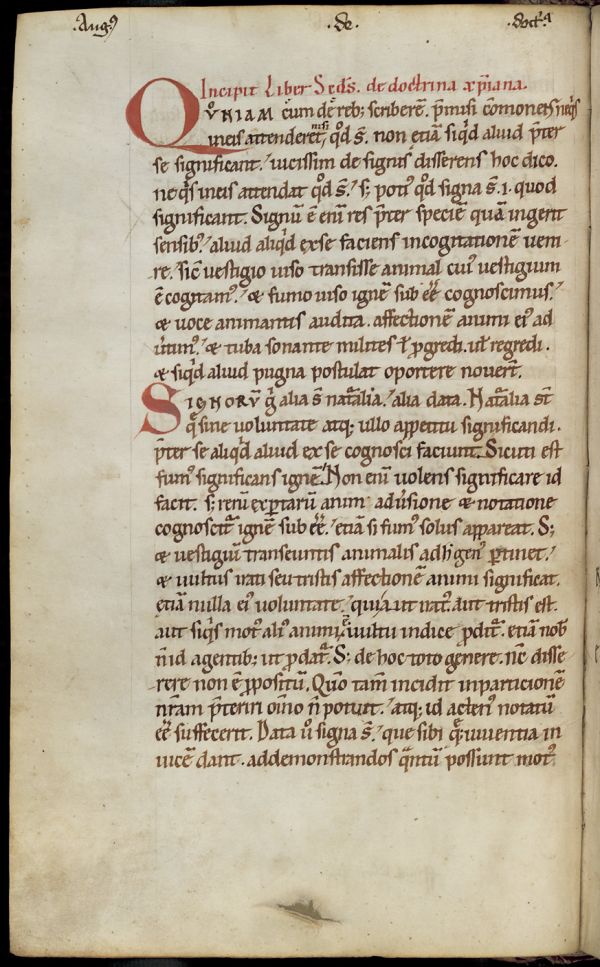 .Augꝰ .de. .doctͬª
Incipit Liber Scd̄s. de doctrina xp̄iana.
QUŌNIAM cū̄m de reb; scriberē. p̄misi cōmonens neq͛s
ineis attenderet nisi q͛d s̄. non etiā siq͛d aliud p̄ter
se significant.ʼ uicissim de signis disserens hoc dico.
ne q͛s ineis attendat q͛d s̄.ʼ s; potiꝰ q͛d signa s̄.i. quod
significant. Signū ē eni res p̄ter speciē quā ingerit
sensibꝰ.ʼ aliud aliq͛d exse faciens incogitationē ueni-
re.ʼ sic̄ uestigio uiso transisse animal cuiꝰ uestigium
ē cogitamꝰ.ʼ & fumo uiso ignē sub eē̄ cognoscimus.ʼ
& uoce animantis audita. affectionē animi eiꝰ ad
utimꝰ.ʼ & tuba sonante milites ł p̄gredi. ul̄ regredi.
& siq͛d aliud pugna postulat oportere nouert̄.
SIGNORŪ g̊ alia s̄ natͣalia.ʼ alia data. Natͣalia st̄
q̄ sine uoluntate atq; ullo appetitu significandi.
p̄ter se aliq͛d aliud ex se cognosci faciunt. Sicuti est
fumꝰ significans ignē.ʼ Non eni uolens significare id
facit. s; rerū exp̱tarū anim aduͥsione & notatione
cognoscitͬ ignē sub eē̄.ʼ etiā si fumꝰ solus appareat. S;
& uestigiū transeuntis animalis adh̄ genꝰ p̱tinet.ʼ
& uultus irati seu tristis affectionē animi significat.
etiā nulla eiꝰ uoluntate.ʼ quia ut iratꝰ aut tristis est.
aut siq͛s motꝰ aliꝰ animi ē uultu indice p̄ditͬ. etiā nob̄
n̄ id agentib; ut p̄datͬ. S; de hoc toto genere. nc̄ disse
rere non ē p̄positū. Quō tam̄ incidit inparticionē
nr̄am p̄teriri om̄io n̄ potuit.ʼ atq; id actenꝰ notatū
eē̄ suffecerit. Data u̇ signa s̄.ʼ que sibi q̄q; uiuentia in
uicē dant. addemonstrandos q̄ntū possunt motꝰ